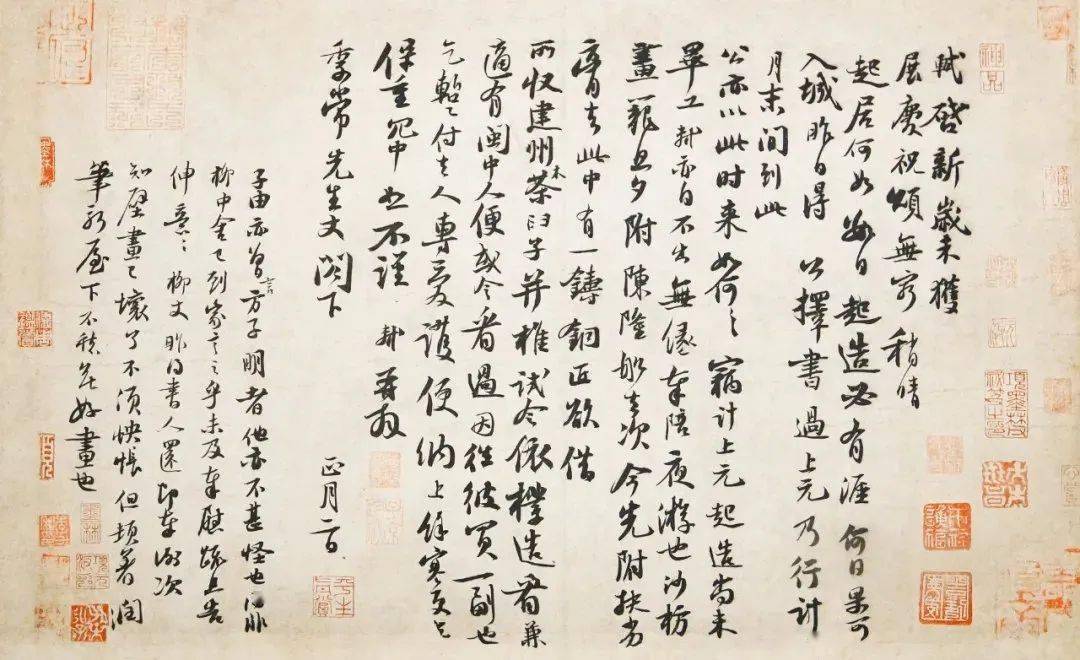 軾啓新歲未獲
展慶祝頌無窮稍晴
起居何如數日起造必有涯何日果可
入城昨日得公擇書過上元乃行計
月末間到此
公亦以此時来如何々竊計上元起造尚未
畢工軾亦自不出無縁奉陪夜遊也沙枋
畫籠旦夕附陳隆船去次今先附扶劣
膏去此中有一鑄銅匠欲借
所收建州木茶臼子并椎試令依樣造看兼
適有閩中人便或令看過因往彼買一副也
乞暫付去人專愛護便納上餘寒更乞
保重冗中恕不謹軾再拜
季常先生丈閤下
正月二日
子由亦曾言方子明者他亦不甚怪也得非
柳中舍已到家言之乎未及奉慰疏且告
伸意々柳丈昨得書人還即奉謝次
知壁畫已壞了不須怏悵但頓著潤
筆新屋下不愁無好畫也